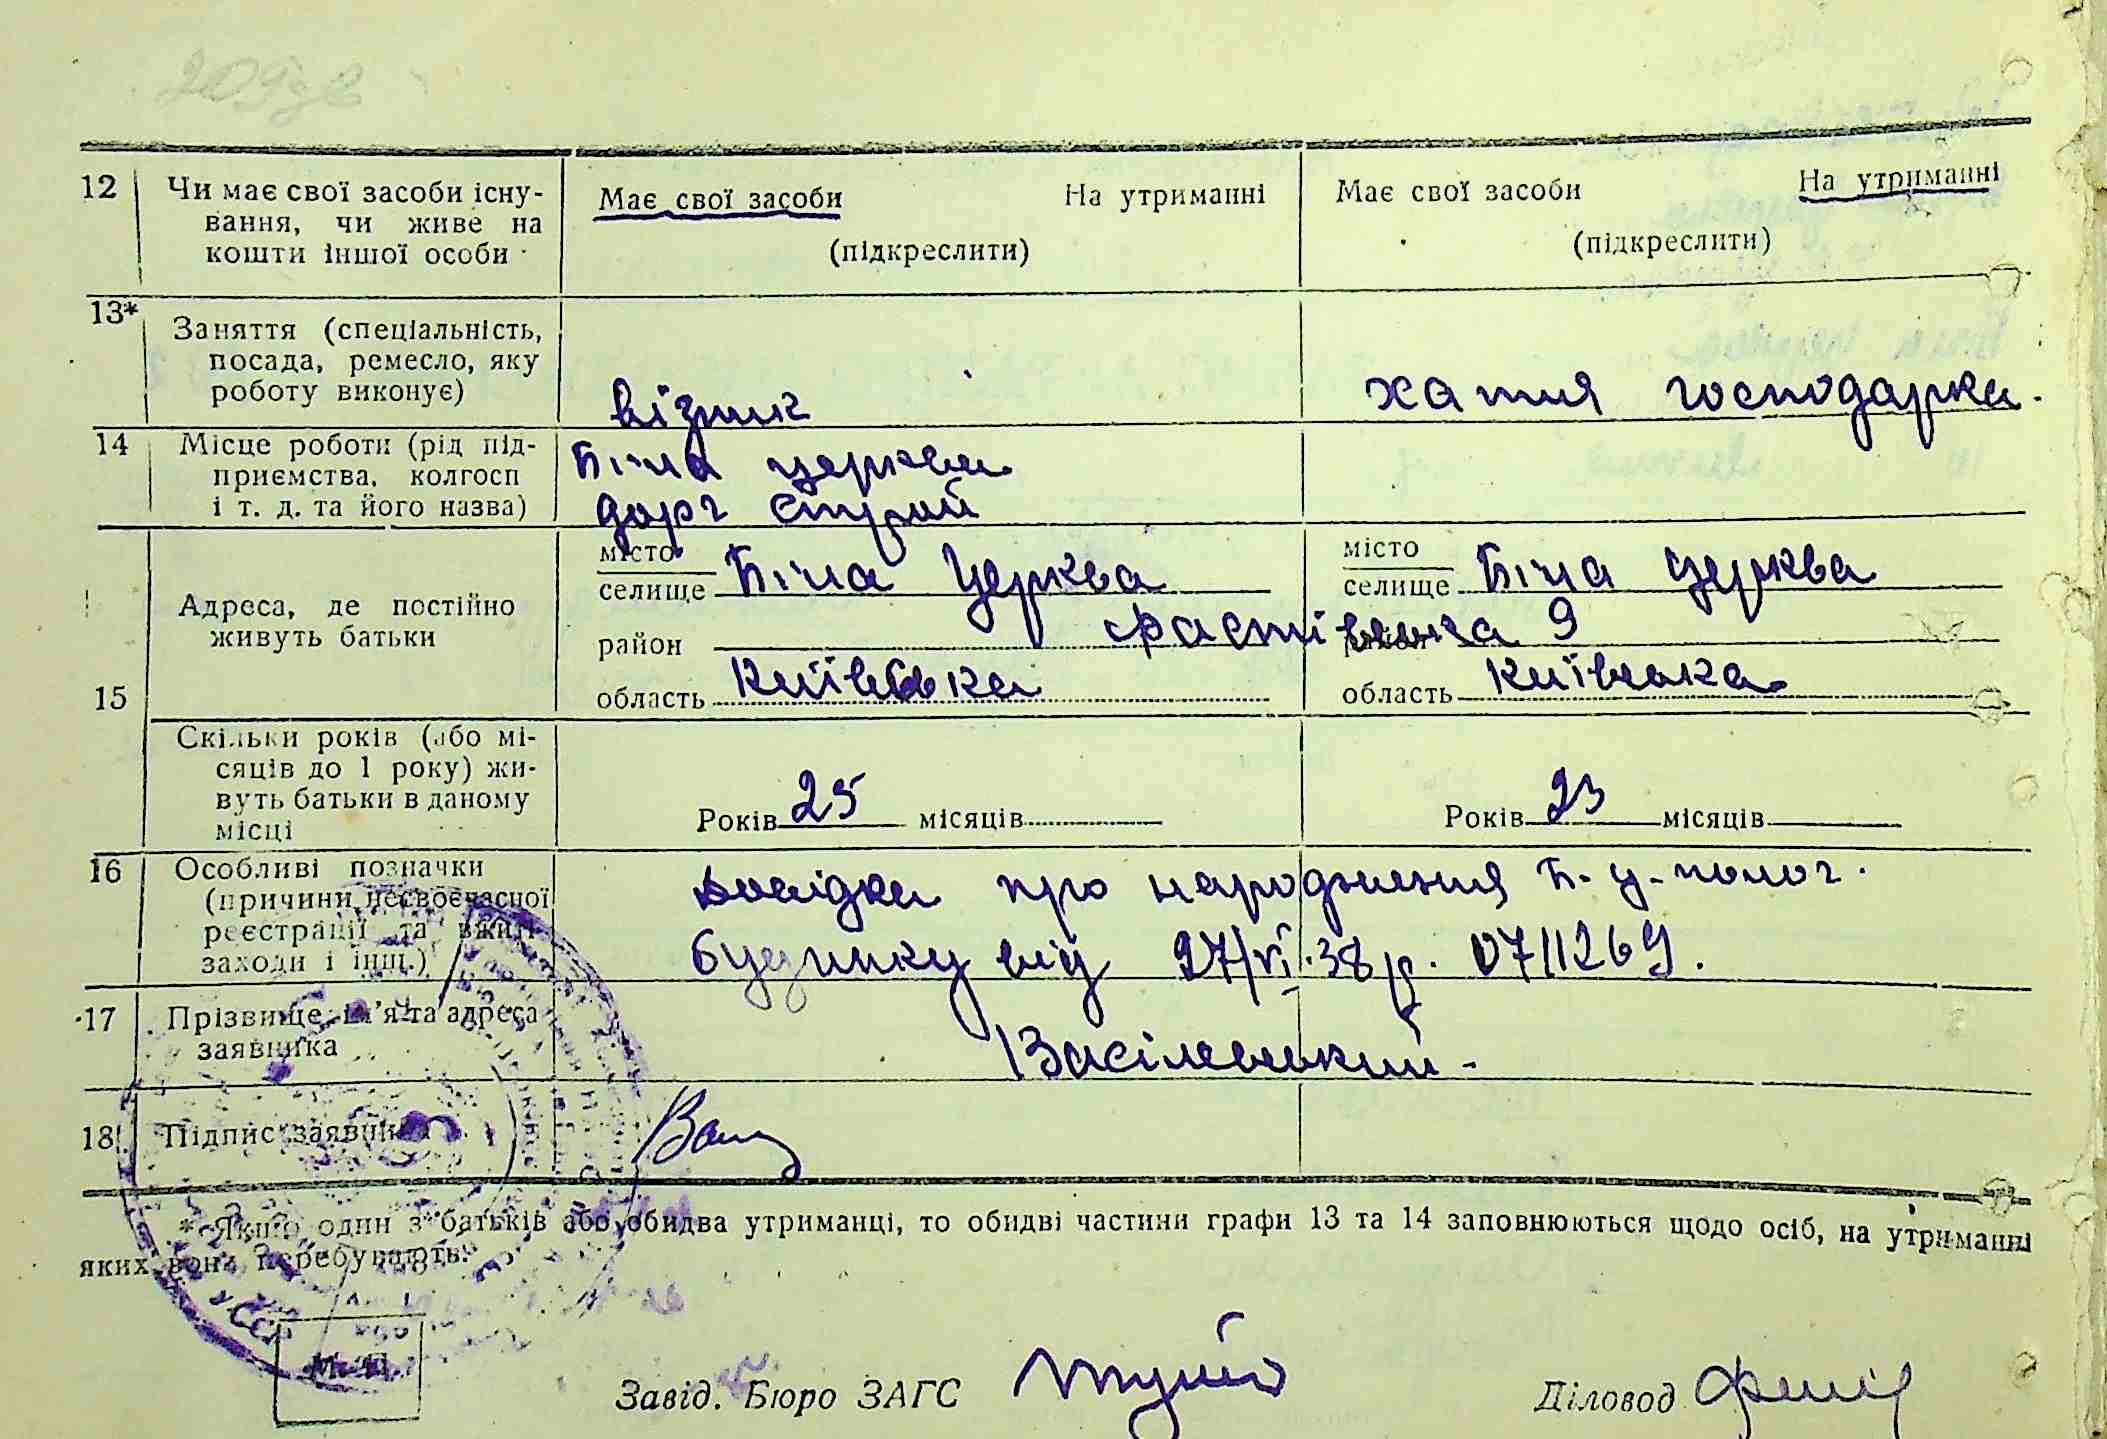 12 Чи має свої засоби існу-
вання, чи живе на
кошти іншої особи
Має свої засоби На утриманні
(підкреслити)
Має свої засоби На утриманні
(підкреслити)
13* Заняття (спеціальність,
посада, ремесло, яку
роботу виконує)
візник
хатня господарка.
14 Місце роботи (рід під-
приємства, колгосп
і т. д. та його назва)
Біла церква
дорг Строй
15 Адреса, де постійно
живуть батьки
місто
селище Біла Церква
район
область Київська
місто
селище Біла Церква
Фастівська 9
область Київська
Скільки років (або мі-
сяців до 1 року) жи-
вуть батьки в даному
місці
Років 25 місяців
Років 23 місяців
16 Особливі позначки
(причини несвоєчасної
реєстрації та вжиті
заходи і інш.)
Довідка про народження Б-ц-полог.
будинку від 27/VI.38 р. 07/1269.
17 Прізвище, ім'я та адреса
заявника
Васілевський-
18 Підпис заявника
* Якщо один з батьків або обидва утриманці, то обидві частини графи 13 та 14 заповнюються щодо осіб, на утриманні
яких вони перебувають.
УССР
М. П.
Завід. Бюро ЗАГС
Діловод